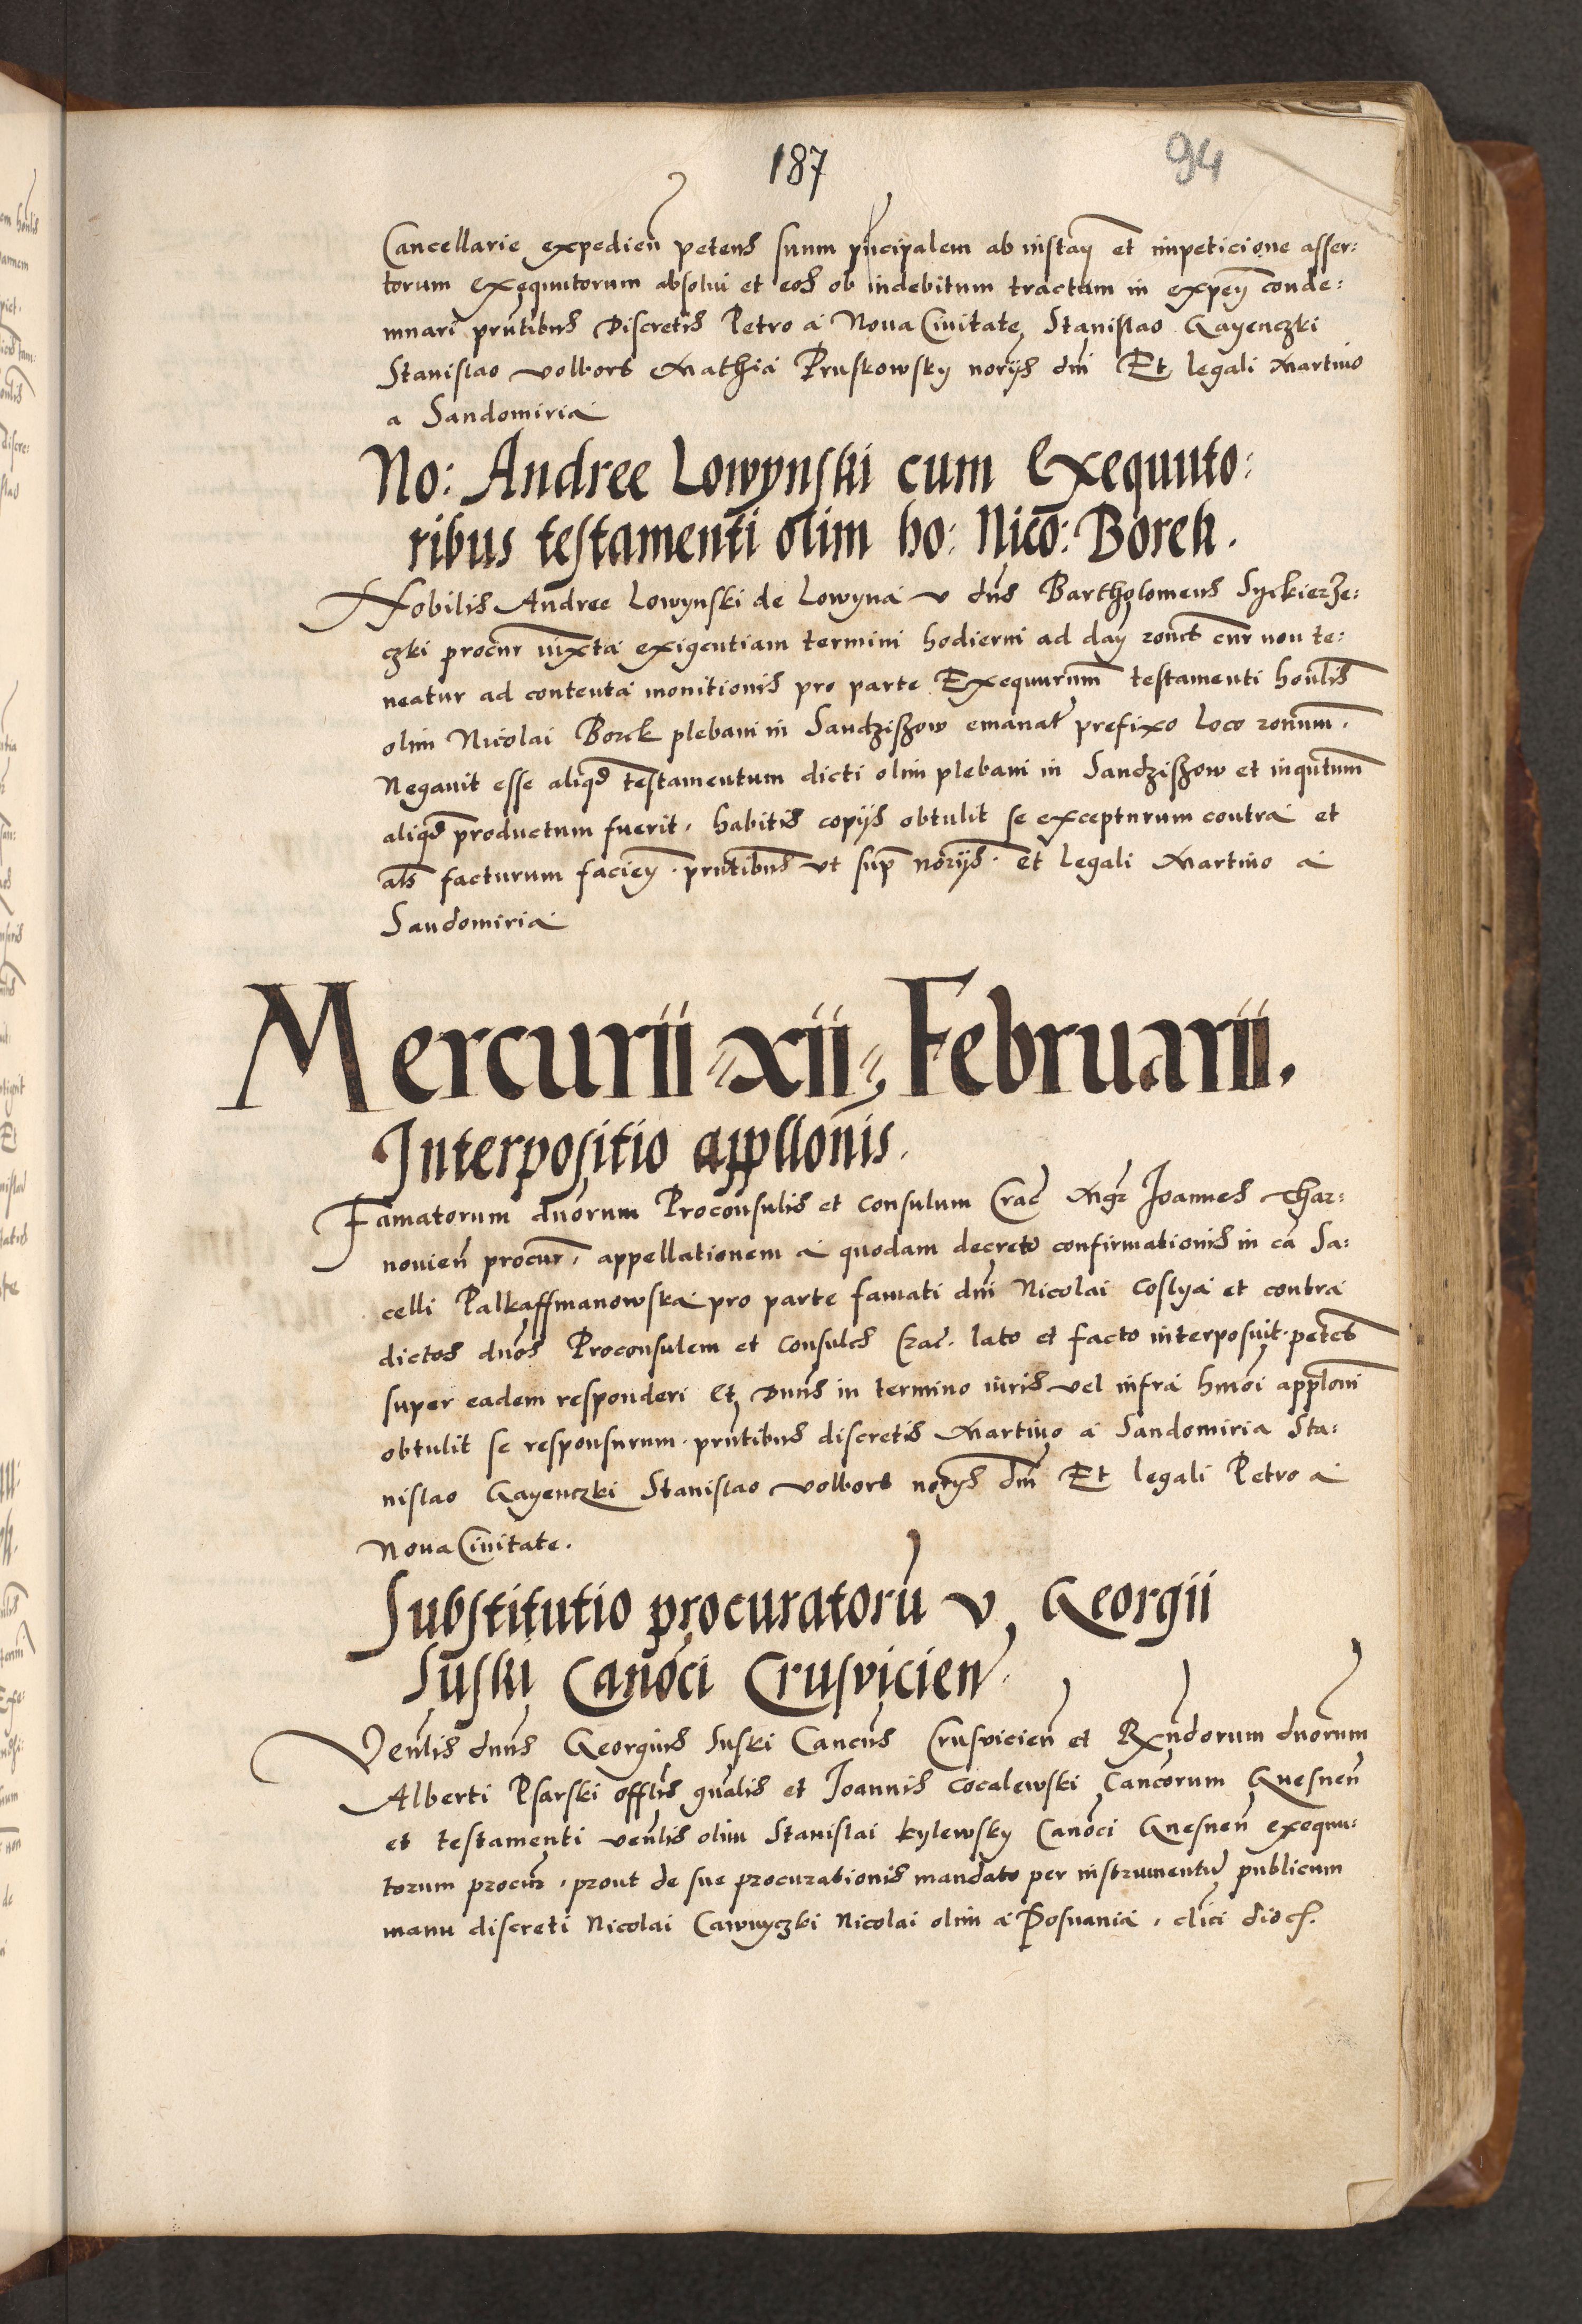 187
94
Cancellarie expedien̄ petens suum prīcipalem ab instan̄ et impeticione asser:
torum exequutorum absolui et eos ob indebitum tractum in expen̄ conde:
mnari prn̄tibus Discretis Petro a Noua Ciuitate Stanislao Gayenczki
Stanislao volbors Mathia Pruskowsky norijs dnī Et legali Martino
a Sandomiria
No: Andree Lowynski cum Exequuto:
ribus testamenti olim ho: Nicō: Borek.
Nobilis Andree Lowynski de Lowyna v dn̄s Bartholomeus Syekierze:
czki procur̄ iuxta exigentiam termini hodierni ad dan̄ ron̄es cur non te:
neatur ad contenta monitionis pro parte Exequur̄um testamenti hon̄lis
olim Nicolai Borek plebani in Sandziszow emanat̄ prefixo loco ron̄um.
Negauit esse aliqd̄ testamentum dicti olim plebani in Sandziszow et inqn̄tum
aliqd̄ productum fuerit, habitis copijs obtulit se excepturum contra et
als̄ facturum facien̄. prn̄tibus vt sup̄ norijs. et legali Martino a
Sandomiria
Mercurii xii Februarii.
Interpositio appllonīs.
Famatorum dn̄orum Proconsulis et Consulum Crac̄ Mgr̄ Joannes Thar:
nouien̄ procur̄, appellationem a quodam decreto confirmationis in cā Sa:
celli Palkaffmanowska pro parte famati dnī Nicolai Costya et contra
dictos dn̄os Proconsulem et Consules Crac̄. lato et facto interposuit. petc̄s
super eadem responderi Et Dn̄us in termino iuris vel infra hmōi app̄loni
obtulit se responsurum. prn̄tibus discretis Martino a Sandomiria Sta:
nislao Gayenczki Stanislao volbors norys dnī Et legali Petro a
Noua Ciuitate.
Substitutio procuratorū v. Georgii
Suski Canōci Crusvicien̄.
Ven̄lis dn̄us Georgius Suski Cancūs Crusvicien̄ et Rxn̄dorum dn̄orum
Alberti Psarski offlīs gn̄alis et Joannis Cocalewski Canc̄orum Gnesnen̄
et testamenti ven̄lis olim Stanislai kylewsky Canōci Gnesnen̄ exequu:
torum procur̄, prout de sue procurationis mandato per instrumentum̄ publicum
manu discreti Nicolai Cawnyczki Nicolai olim a Posnania, clīci dioc̄.